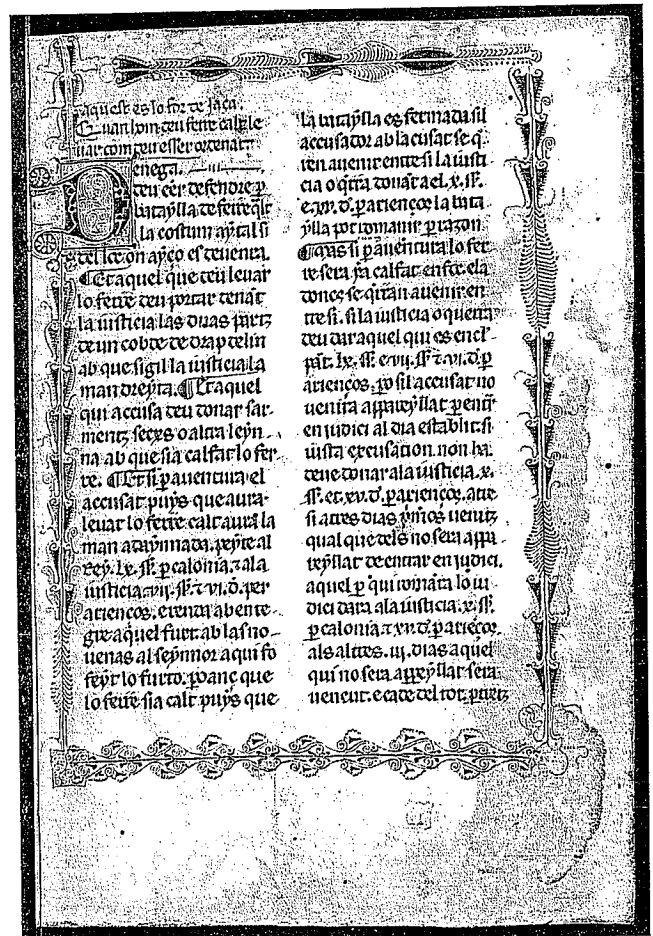 Aquest es lo for de Jaca.
Quan hom deu ferre calt le
uar com deu esser ordenat.
Denega.
deu eēr defendre p̄
bataylla de ferre
la costum aytal si
del loc on ayço es deuenra.
¶ Et aquel que deu leuar
lo ferre deu portar denāt
la iusticia las duas partz
de un cobde de drap de lin
ab que sigil la iusticia la
man dreyta. ¶ Et aquel
qui accusa deu donar sar-
mentz secxs o altra leyn-
na ab que sia calfat lo fer-
re. ¶ Et si p auentura el
accusat puys que aura
leuat lo ferre calt aura la
man adaymnada. peyte al
Rey. lx. ss̄. p calonia. ⁊ a la
iusticia. vii. ss̄. ⁊ vi. d̄. per
ariencos. e renda ab ente-
gre aquel furt ab las no-
uenas al seynnor a qui fo
feyt lo furto. p̄o anç que
lo ferre sia calt puys que
la batay̆lla es fermada si l
accusador ab l acusat se q̄-
ren auenir entre si la iusti
cia o q̄rra donat a el. x. ss̄.
e xv. d̄. p ariencos la bata
ylla pot romanir p razon
¶ Mas si p auentura lo fer-
re sera ia calfat en foc e la
donc se q̄rran auenir en
tre si. si la iusticia o querra
deu dar aquel qui es encl-
pat. lx. ss̄. e vii. ss̄ ⁊ vi. d̄. p
ariencos. p̄o si l accusat no
uenira appareyllat p entr̄
en iudici al dia establit. si
iusta excusation non ha
deue donar a la iusticia. x.
ss̄. et xv. d̄. p ariencos. atre
si a tres dias p̄mers uenitz
qual que dels no sera appa
reyllat de entrar en iudici.
aquel p qui romāra lo iu
dici dara a la iusticia. x. ss̄.
p calonia. ⁊ xv. d̄. p ariēcos.
als altres. iii. dias aquel
qui no sera appeyllat sera
uencut. e cade del tot. p dretz